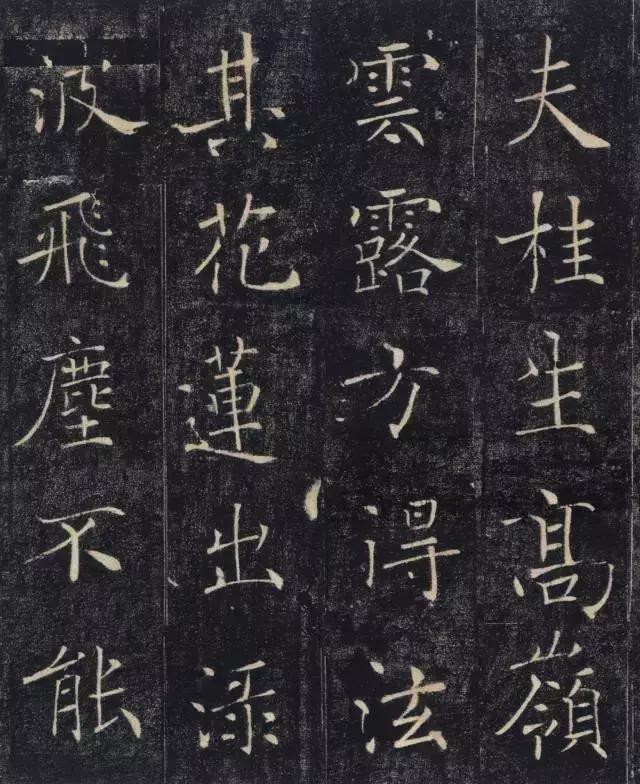 夫桂生髙嶺
雲露方得泫
其花蓮出淥
波飛塵不能